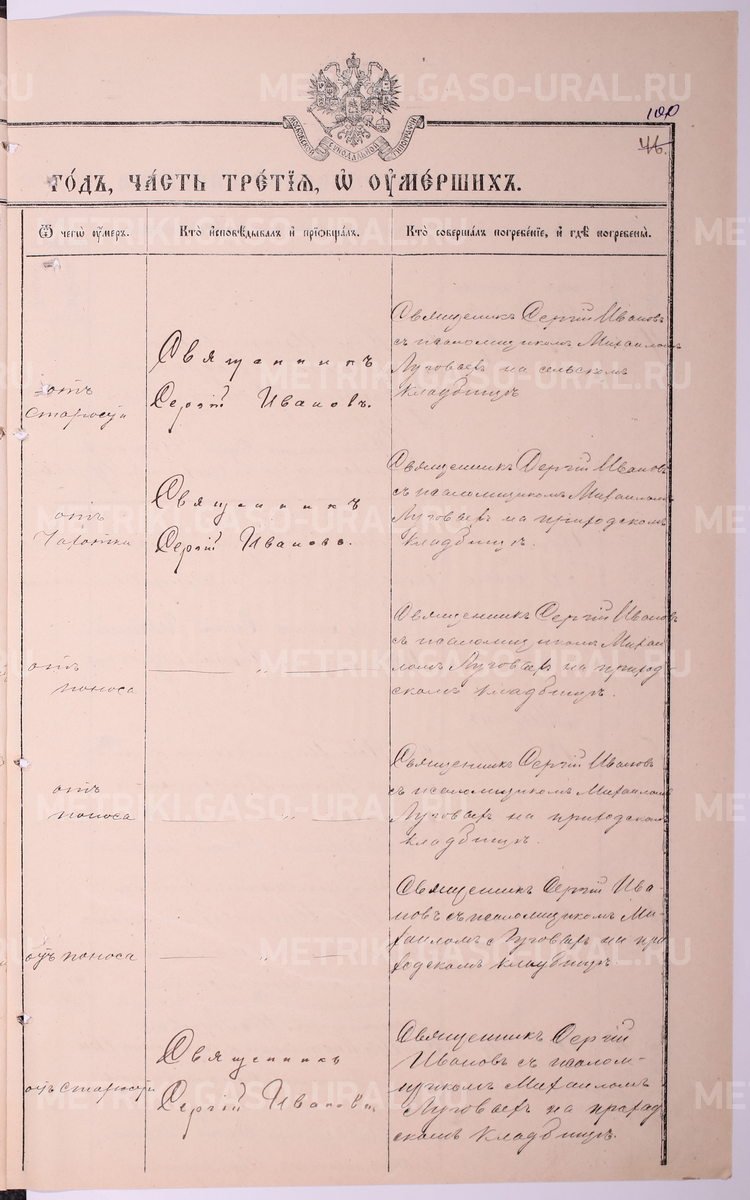 METRIKI.GASO-URAL.RU
МОСКОВСКОЙ СѴНОДАЛЬНОЙ ТИПОГРАФІИ
100
46.
го́дъ, ча́сть тре́тїѧ, ѡ҆ ᲂу҆ме́ршихъ.
Ѿ чегѡ̀ ᲂу҆́меръ.
Кто̀ и҆сповѣ́дывалъ и҆ прїѻбща́лъ.
Кто̀ соверша́лъ погребе́нїе, и҆ гдѣ̀ погребены̀.
отъ
старости
Священникъ
Сергій Ивановъ.
Священикъ Сергій Ивановъ
съ псаломщикомъ Михаиломъ
Луговыхъ на сельскомъ
кладбищѣ
отъ
Чахотки
Священникъ
Сергій Ивановъ.
Священникъ Сергій Ивановъ
съ псаломщикомъ Михаиломъ
Луговыхъ на приходскомъ
кладбищѣ.
отъ
поноса
— „ —
Священникъ Сергій Ивановъ
съ псаломщикомъ Михаи-
ломъ Луговыхъ на приход-
скомъ кладбищѣ.
отъ
поноса
— „ —
Священникъ Сергій Ивановъ
съ псаломщикомъ Михаиломъ
Луговыхъ на приходскомъ
кладбищѣ.
отъ поноса
— „ —
Священникъ Сергій Ива-
новъ съ псаломщикомъ Ми-
хаиломъ Луговыхъ на при
ходскомъ кладбищѣ
отъ старости
Священникъ
Сергій Ивановъ
Священникъ Сергій
Ивановъ съ псалом-
щикомъ Михаиломъ
Луговыхъ на приход
скомъ кладбищѣ.